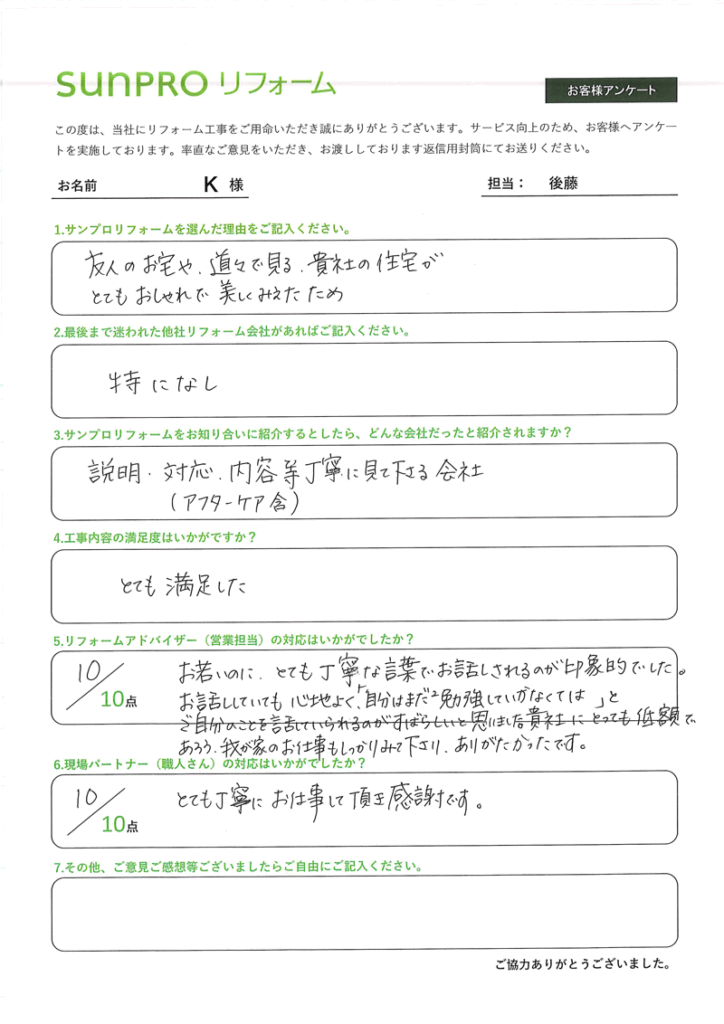 sunPRO リフォーム
お客様アンケート
この度は、当社にリフォーム工事をご用命いただき誠にありがとうございます。サービス向上のため、お客様へアンケー
トを実施しております。率直なご意見をいただき、お渡ししております返信用封筒にてお送りください。
お名前 K 様
担当： 後藤
1.サンプロリフォームを選んだ理由をご記入ください。
友人のお宅や、道々で見る、貴社の住宅が
とてもおしゃれで美しくみえたため
2.最後まで迷われた他社リフォーム会社があればご記入ください。
特になし
3.サンプロリフォームをお知り合いに紹介するとしたら、どんな会社だったと紹介されますか？
説明・対応、内容等丁寧に見て下さる会社
（アフターケア含）
4.工事内容の満足度はいかがですか？
とても満足した
5.リフォームアドバイザー（営業担当）の対応はいかがでしたか？
10／10点
お若いのに、とても丁寧な言葉でお話しされるのが印象的でした。
お話ししていても心地よく、「自分はまだ2勉強していかなくては」と
ご自分のことを話していられるのがすばらしいと思いました貴社にとっても低額で
あろう、我が家のお仕事もしっかりみて下さり、ありがたかったです。
6.現場パートナー（職人さん）の対応はいかがでしたか？
10／10点
とても丁寧にお仕事して頂き感謝です。
7.その他、ご意見ご感想等ございましたらご自由にご記入ください。
ご協力ありがとうございました。